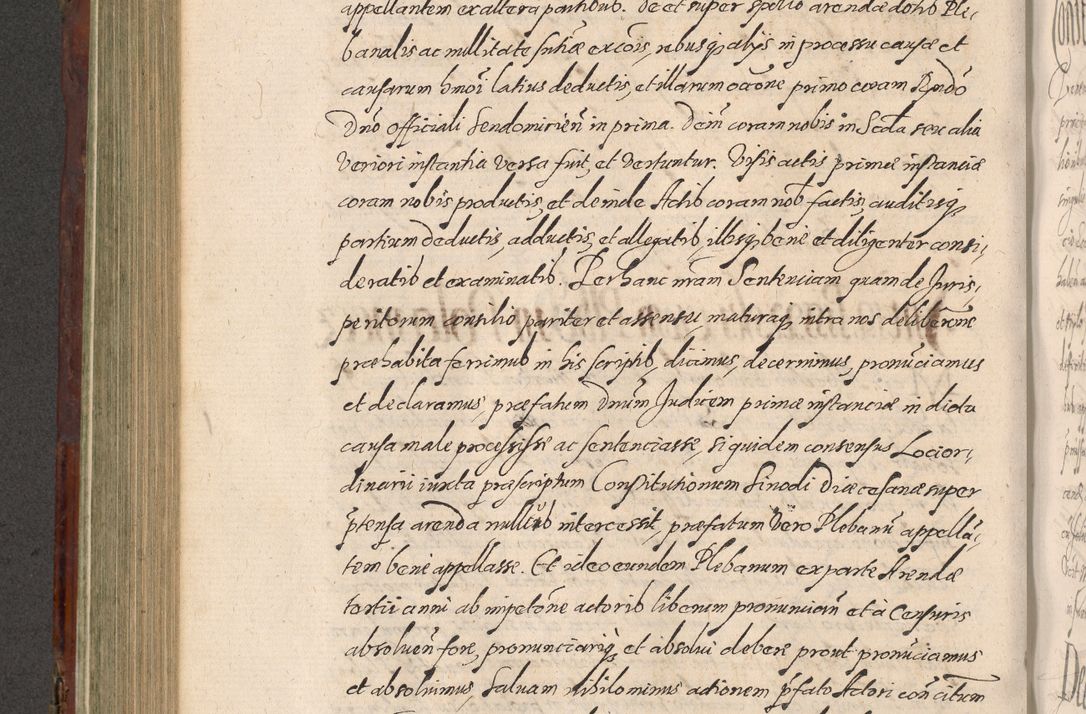 appellantem ex altera partibus. De et super spolio arendæ dotis Ple-
banalis ac nullitate sntiæ excõis, rebusq; alijs in processu causæ et
causarum hmõi latius deductis, et illarum occõne primo coram Rndo
Dno Officiali Sendomirien in prima. Dein coram nobis in Scda seu alia
veriori instantia versa fuit, et vertuntur. Visis actis primæ instanciæ
coram nobis productis, et deinde Actis coram nob factis, auditisq;
partium deductis, adductis, et allegatis, illisq; bene et diligenter consi,
deratis et examinatis. Per hanc nram Sentenciam quam de Juris,
peritorum consilio pariter et assensu, maturaq; intra nos deliberõne
præhabita ferimus in his scriptis, dicimus, decernimus, pronũciamus
et declaramus, præfatum Dnum Judicem primæ instanciæ in dicta
causa male processisse ac sentenciasse, siquidem consensus Loci or,
dinarii iuxta præscriptum Constitutionum Sinodi Diæcesanæ super
ptensa arenda nullus intercessit, præfatum vero Plebanũ appellã,
tem bene appellasse. Et ideo eundem Plebanum ex parte Arendæ
tertii anni ab impetõne actoris liberum pronuncian et à Censuris
absoluen fore, pronunciariq; et absolui debere prout pronũciamus
et absoluimus, saluam nihilominus actionem pfato Actori concitum